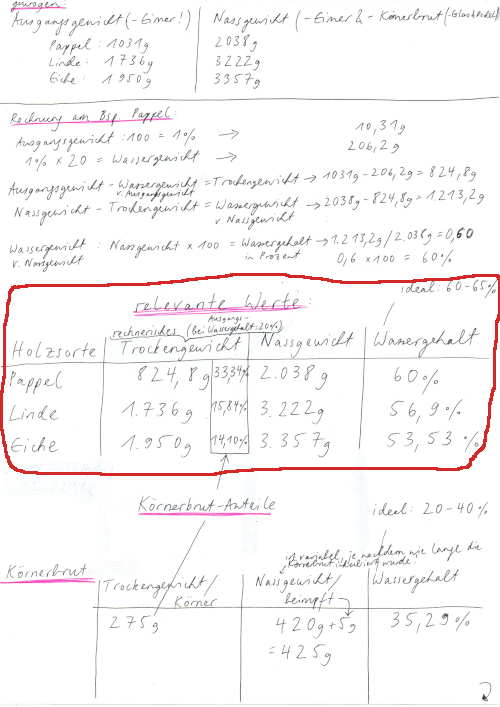 gewogen:
Ausgangsgewicht (- Eimer!) Nassgewicht (- Eimer & - Körnerbrut (- Glas & Deckel)
Pappel: 1031g 2038g
Linde: 1736g 3222g
Eiche: 1950g 3357g
Rechnung am Bsp. Pappel:
Ausgangsgewicht : 100 = 1% → 10,31g
1% x 20 = Wassergewicht → 206,2g
Ausgangsgewicht - Wassergewicht v. Ausgangsgewicht = Trockengewicht → 1031g - 206,2g = 824,8g
Nassgewicht - Trockengewicht = Wassergewicht v. Nassgewicht → 2038g - 824,8g = 1.213,2g
Wassergewicht v. Nassgewicht : Nassgewicht x 100 = Wassergehalt in Prozent → 1.213,2g / 2.038g = 0,60
0,6 x 100 = 60%
ideal: 60-65%
relevante Werte:
rechnerisches (bei Ausgangs-Wassergehalt: 20%)
Holzsorte Trockengewicht Nassgewicht Wassergehalt
Pappel 824,8g 33,34% 2.038g 60%
Linde 1.736g 15,84% 3.222g 56,9%
Eiche 1.950g 14,10% 3.357g 53,53%
Körnerbrut-Anteile
ideal: 20-40%
ist variabel, je nachdem wie lange die
Körnerbrut inkubiert wurde.
Körnerbrut Trockengewicht/Körner Nassgewicht/beimpft Wassergehalt
275g 420g+5g 35,29%
=425g